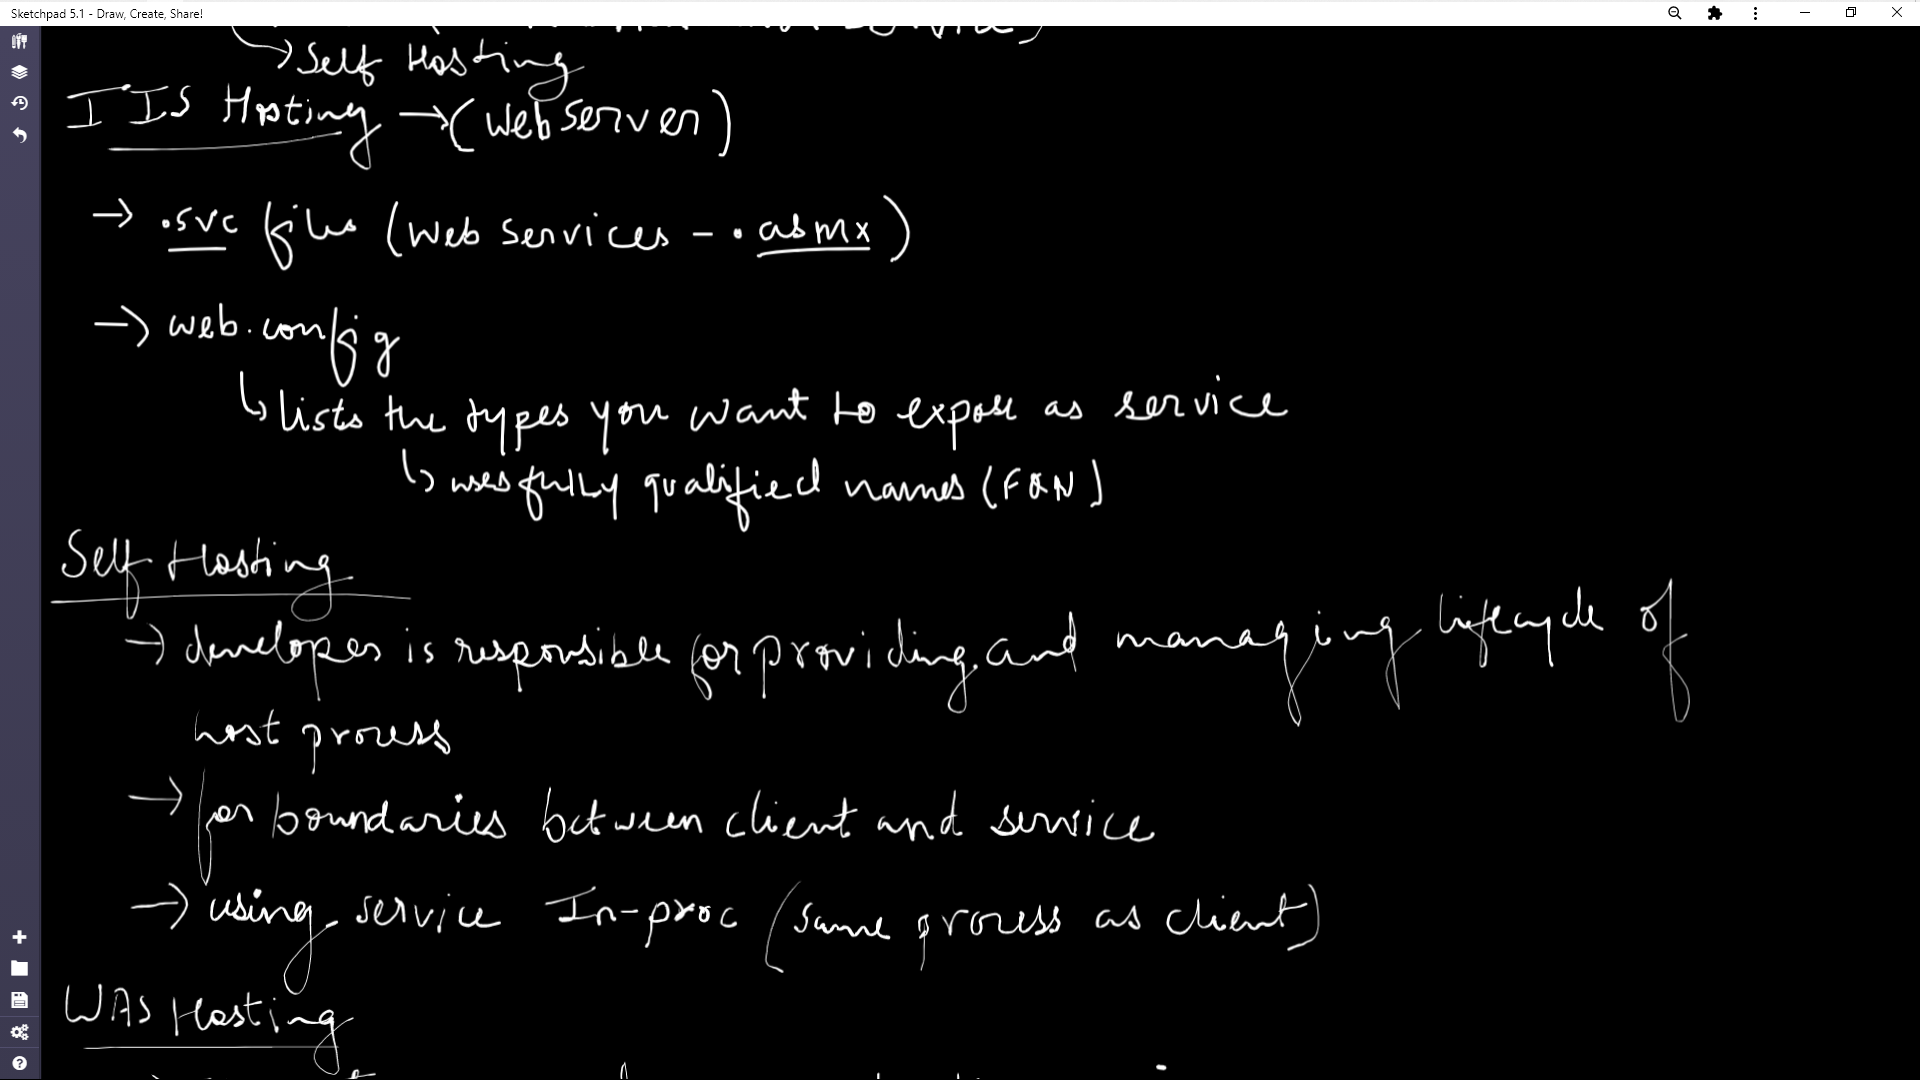 Sketchpad 5.1 - Draw, Create, Share!
→ Self Hosting
IIS Hosting → (Web Server)
→ .svc files (Web Services - .asmx)
→ web.config
↳ lists the types you want to expose as service
↳ uses fully qualified names (FQN)
Self Hosting
→ developer is responsible for providing and managing lifecycle of
host process
→ for boundaries between client and service
→ using service In-proc (same process as client)
WAS Hosting